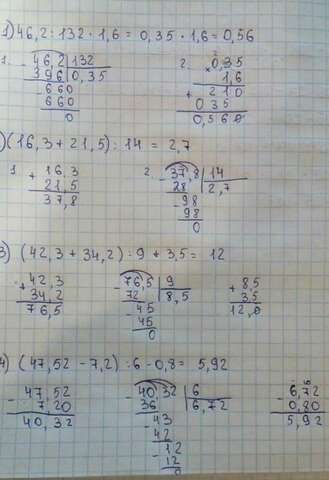 1) 46,2 : 132 · 1,6 = 0,35 · 1,6 = 0,56
1. 46,2 | 132 2. 0,35
- 396 | 0,35 × 1,6
- 660 + 210
660 035
0 0,560
) (16,3 + 21,5) : 14 = 2,7
1. + 16,3 2. - 37,8 | 14
21,5 28 | 2,7
37,8 - 98
98
0
3) (42,3 + 34,2) : 9 + 3,5 = 12
+ 42,3 76,5 | 9 + 8,5
34,2 72 | 8,5 3,5
76,5 - 45 12,0
45
0
4) (47,52 - 7,2) : 6 - 0,8 = 5,92
- 47,52 - 40,32 | 6 - 6,72
7,20 36 | 6,72 0,80
40,32 - 43 5,92
42
- 12
12
0